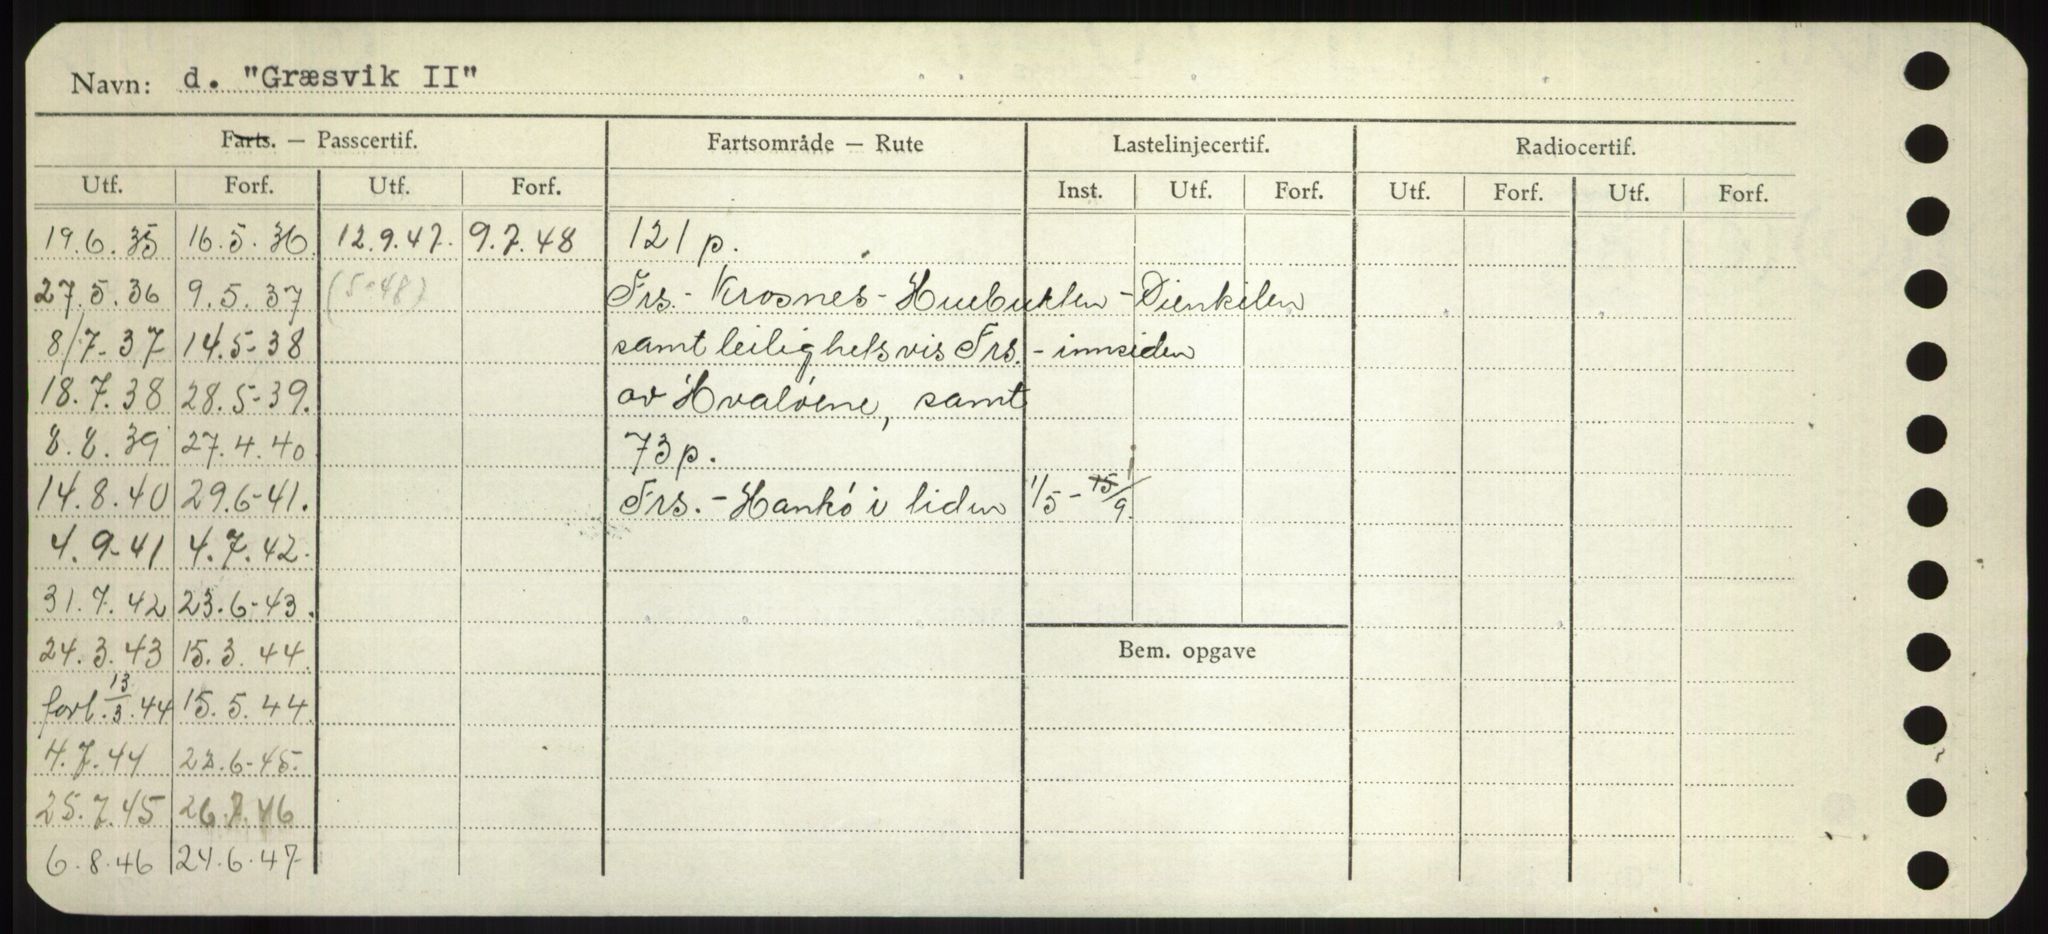 Navn: d. "Græsvik II"
Farts. — Passcertif. Fartsområde — Rute Lastelinjecertif. Radiocertif.
Utf. Forf. Utf. Forf. Inst. Utf. Forf. Utf. Forf. Utf. Forf.
19.6.35 16.5.36 12.9.47. 9.7.48 121 p.
27.5.36 9.5.37 (5-48) Frs. - Krosnes - Huebukten - Dienkilen
8/7-37 14.5-38 samt leilighetsvis Frs. - innsiden
18.7.38 28.5-39. av Hvaløene, samt
8.8.39 27.4.40 73 p.
14.8.40 29.6-41. Frs. - Hankø i tiden 1/5 - 15/9.
4.9-41 4.7.42-
31.7.42 23.6-43.
24.3.43 15.3.44. Bem. opgave
forl. 13/3.44 15.5.44.
4.7.44 6-45-
25.7.45 26.7.46
6.8.46 24.6.47-